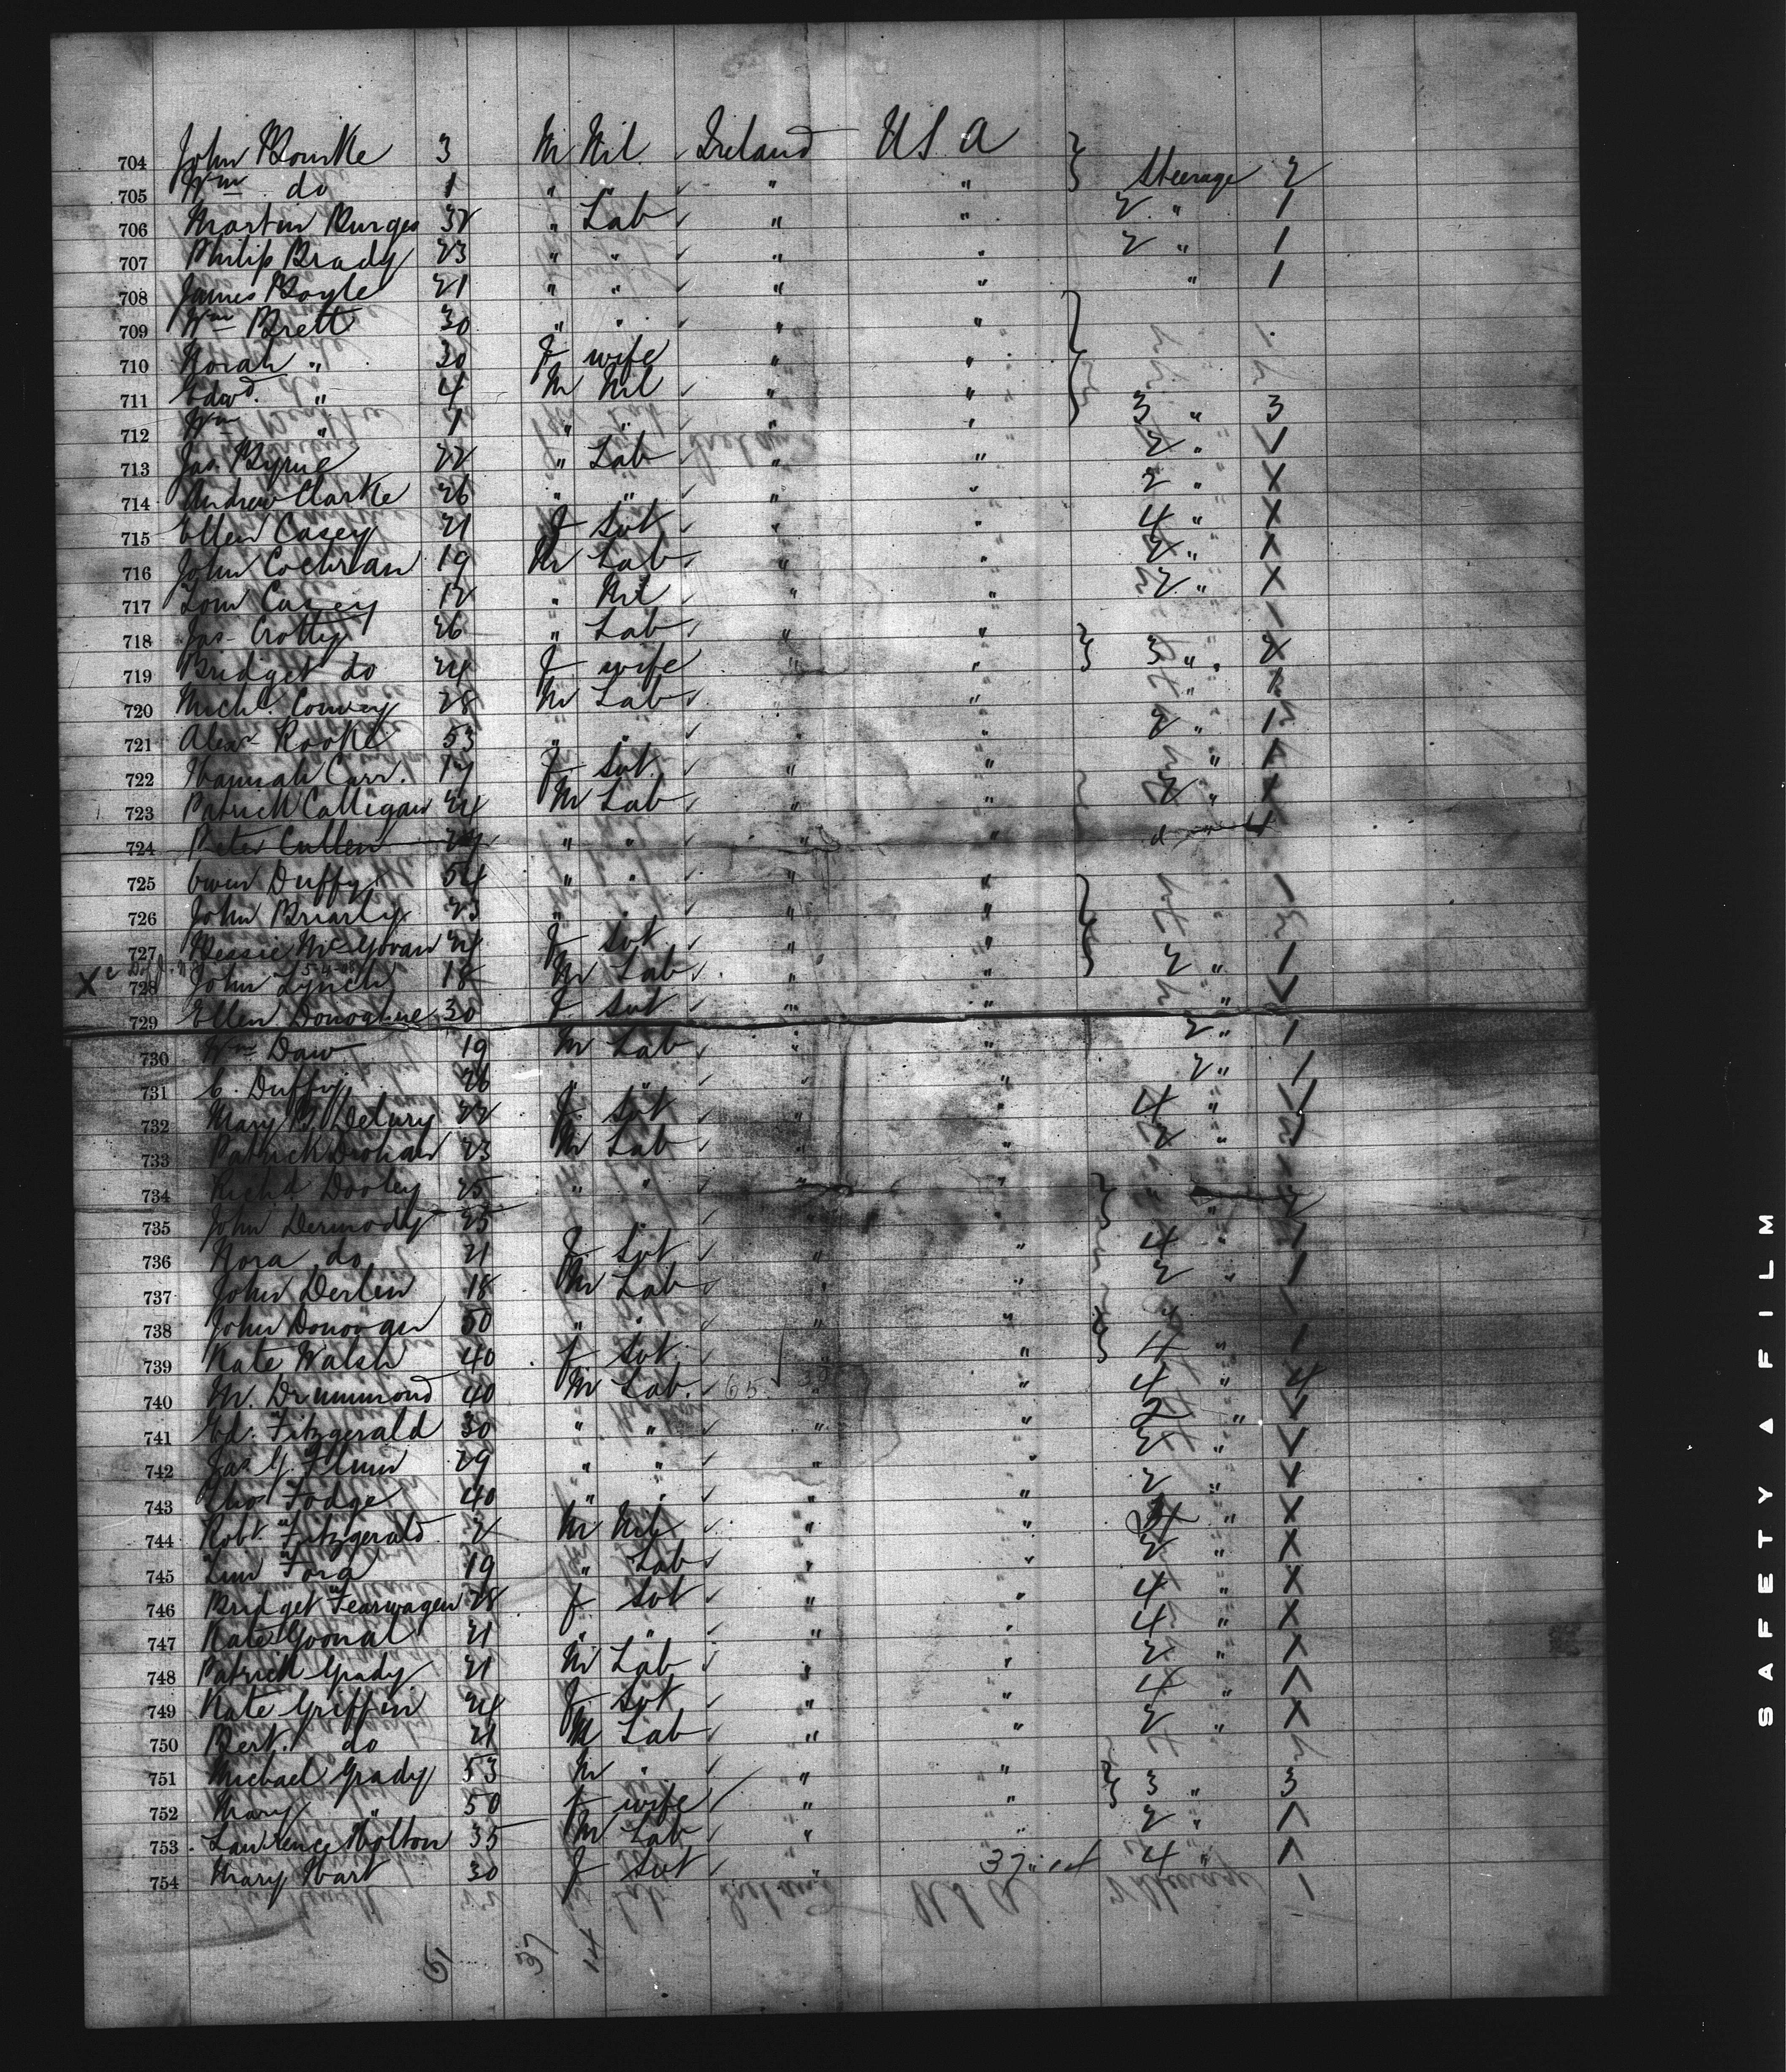 704 John Bourke 3 M Nil Ireland USA } Steerage 2
705 Wm do 1 " " " "
706 Martin Burges 32 " Lab " " 2 " 1
707 Philip Brady 23 " " " " 2 " 1
708 James Boyle 21 " " " " " 1
709 Wm Brett 30 " " " "
710 Norah " 30 F wife " "
711 Edwd. " 4 M Nil " "
712 Wm " 1 " " " " 3 " 3
713 Jas. Byrne 22 " Lab " " 2 " 1
714 Andrew Clarke 26 " " " " 2 " X
715 Ellen Casey 21 F Svt " " 4 " X
716 John Cochran 19 M Lab " " 2 " X
717 Tom Casey 12 " Nil " " 2 " X
718 Jas Crotty 26 " Lab " "
719 Bridget do 24 F wife " " 3 " 2
720 Michl. Conway 28 M Lab " " " 1
721 Alexr Rooke 53 " " " " 2 " 1
722 Hannah Carr. 17 F Svt " " " 1
723 Patrick Calligan 24 M Lab " " 2 " 1
724 Peter Cullen 24 " " " "
725 Owen Duffy 54 " " " "
726 John Briarly 23 " " " "
727 Bessie McGovran 24 F Svt " "
728 John Lynch 18 M Lab " " 2 " 1
729 Ellen Donoghue 30 F Svt " " "
730 Wm Daw 19 M Lab " " 2 " 1
731 C. Duffy 26 " " " 2 " 1
732 Mary B. Delury 22 F Svt " " 4 " 1
733 Patrick Drohan 23 M Lab " " 2 " 1
734 Richd Dooley 25 " " " "
735 John Dermody 25 " "
736 Nora do 21 F Svt " " 4 " 1
737 John Derlin 18 M Lab " " 2 " 1
738 John Donovan 50 " " " "
739 Kate Walsh 40 F Svt " 4 " 1
740 M. Drummond 40 M Lab. 65 " " 4 " 4
741 Ed. Fitzgerald 30 " " " " 2 "
742 Jas G. Flinn 29 " " " " 2 "
743 Thos Fodge 40 " " " " 2 " X
744 Robt. Fitzgerald M Nil " " " X
745 Tim Ford 19 " Lab " " 2 " X
746 Bridget Fearwagen 28 F Svt " " 4 " X
747 Kate Goonal 21 " " " " 4 " X
748 Patrick Grady 21 M Lab " " 2 "
749 Kate Griffin 24 F Svt " " 4 "
750 Bert. do 21 M Lab " " 2 " X
751 Michael Grady 53 M " " "
752 Mary " 50 F wife " " 3 " 3
753 Lawrence Holton 35 M Lab " " 2 "
754 Mary Hart 30 F Svt " 4 "
61 37 14
SAFETY ▲ FILM